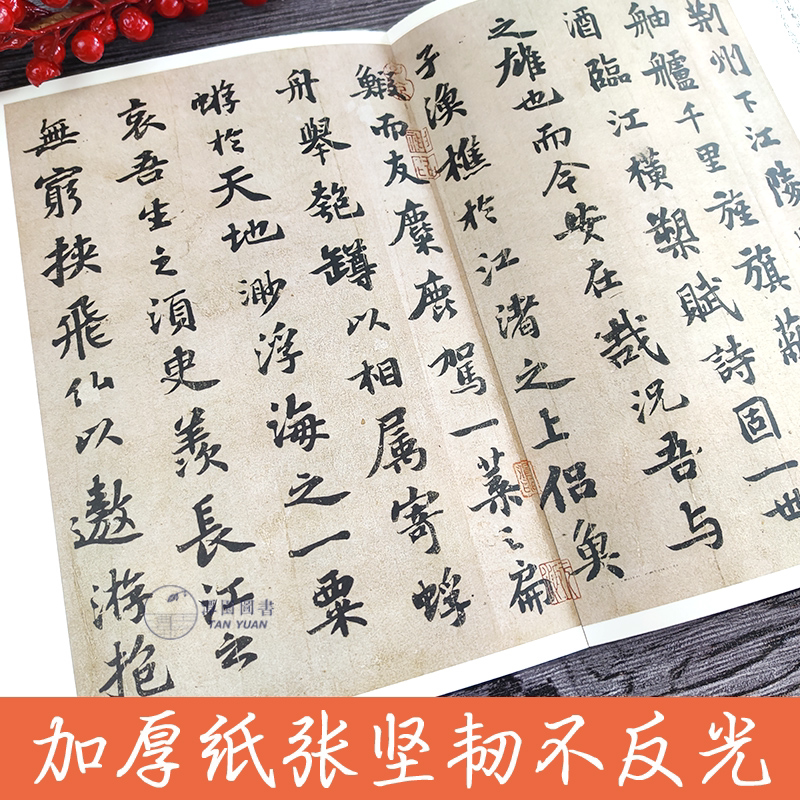 荆州下江陵
舳艫千里旌旗蔽
酒臨江橫槊賦詩固一世
之雄也而今安在哉况吾与
子漁樵於江渚之上侣魚
鰕而友麋鹿駕一葉之扁
舟舉匏罇以相属寄蜉
蝣於天地渺浮海之一粟
哀吾生之須臾羨長江之
無窮挾飛仙以遨游抱
潭圓圖書
TAN YUAN
加厚纸张坚韧不反光